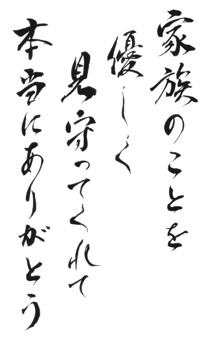 家族のことを
優しく
見守ってくれて
本当にありがとう